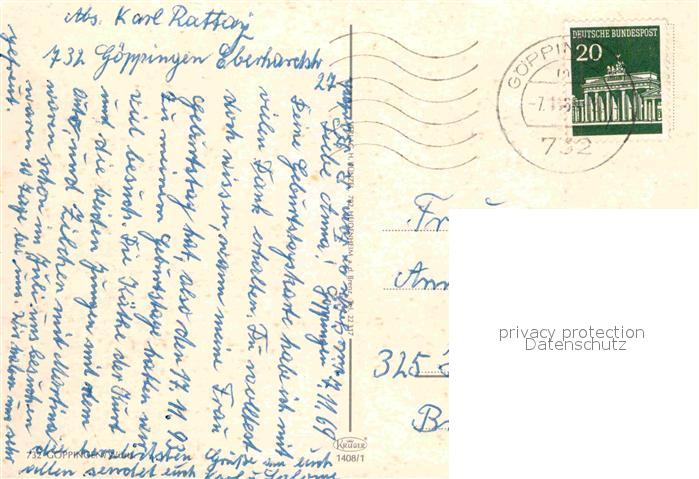 Abs. Karl Rattay
732 Göppingen Eberhardstr
27
Göppingen, 7.11.67
Liebe Anna!
Deine Geburtstagskarte habe ich mit
vielen Dank erhalten. Du wolltest
doch wissen, wann meine Frau
Geburtstag hat, also den 17.11.93
zu meinem Geburtstage hatten wir
viel besuch. Die Käthe der Kurt
und die beiden Jungen mit dem
Auto, und Zilchen mit Martina
waren schon im Juli uns besuchen
waren 10 Tage bei uns. Wir haben uns sehr
gefreut.
die herzlichsten Grüße an euch
allen sendet euch Karl u.
732 GÖPPINGEN
KRÜGER
1408/1
DEUTSCHE BUNDESPOST
20
GÖPPIN
-7.11.
732
Fr
Ann
325
B
privacy protection
Datenschutz